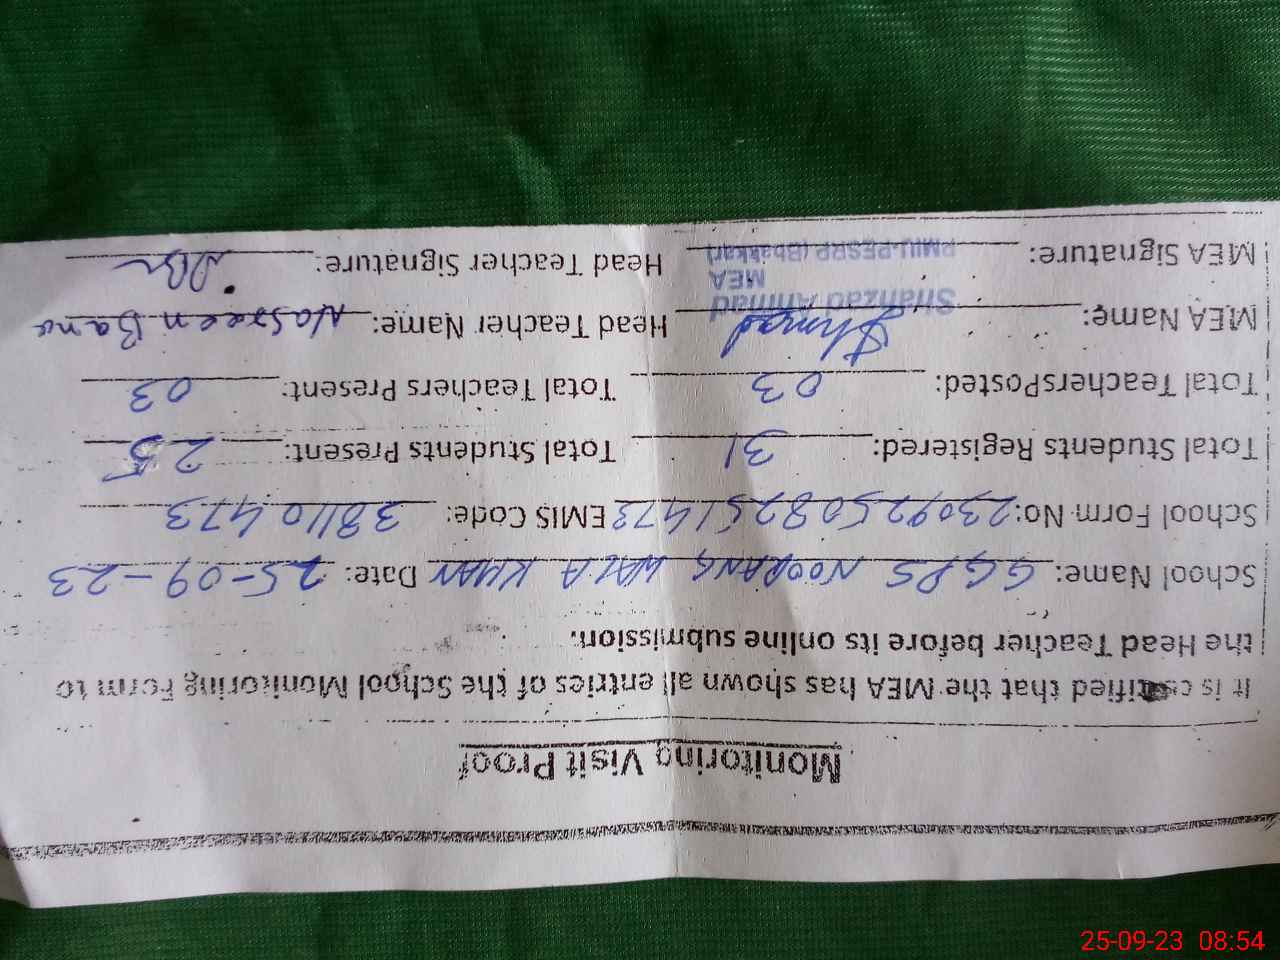 Monitoring Visit Proof
It is certified that the MEA has shown all entries of the School Monitoring Form to
the Head Teacher before its online submission.
School Name: GGPS NOORANG WALA KHAN Date: 25-09-23
School Form No: 23092508251473 EMIS Code: 38110473
Total Students Registered: 31 Total Students Present: 25
Total TeachersPosted: 03 Total Teachers Present: 03
MEA Name: Shahzad Ahmad Head Teacher Name: Nasreen Bano
MEA
MEA Signature: PMIU-PESRP (Bhakkar) Head Teacher Signature:
25-09-23 08:54